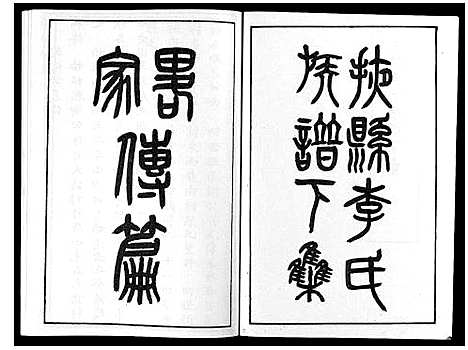 掖縣李氏
族譜下集
畧家
傳
篇